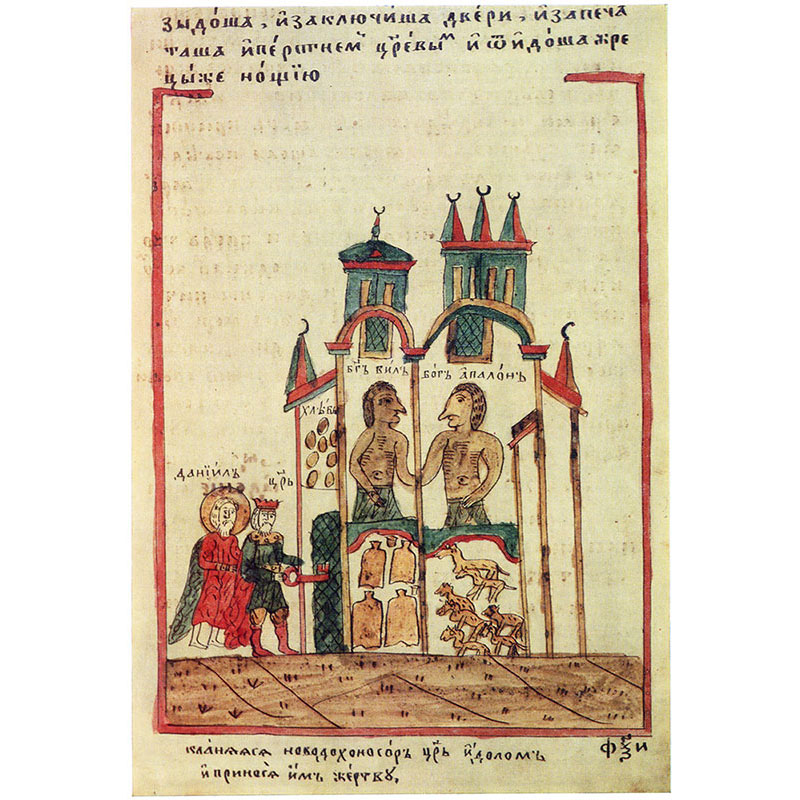 зыдо́ша, и҆заключи́ша две́ри, и҆запеча
таша и҆пе́рстнемъ цр҃е́вымъ и҆ ѿидо́ша жре
цы́же но́щїю
бг҃ъ вилъ
бо́гъ а҆пало́нъ
хлѣ́бы
данїи́лъ
цр҃ь
кланѧ́ѧсѧ новодохоносо́ръ цр҃ь и҆́доломъ
и҆принося̀ и҆́мъ же́ртву,